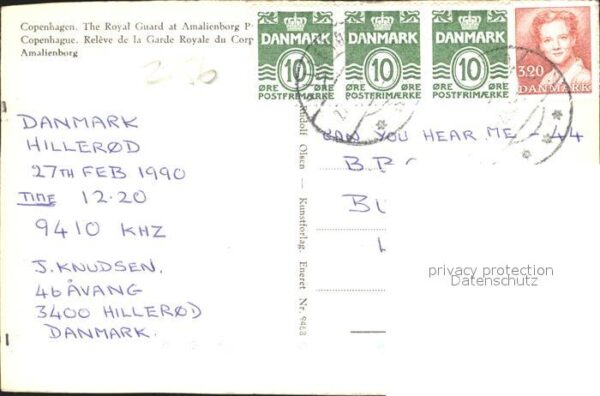 Copenhagen. The Royal Guard at Amalienborg P
Copenhague. Relève de la Garde Royale du Corp
Amalienborg
DANMARK
10
ØRE
POSTFRIMÆRKE
DANMARK
10
ØRE ØRE
POSTFRIMÆRKE
DANMARK
10
ØRE ØRE
POSTFRIMÆRKE
320
DANMARK
DANMARK
HILLERØD
27TH FEB 1990
TIME 12.20
9410 KHZ
J. KNUDSEN.
46 ÅVANG
3400 HILLERØD
DANMARK.
Rudolf Olsen - Kunstforlag. Eneret Nr. 9463
CAN YOU HEAR ME - 44
privacy protection
Datenschutz